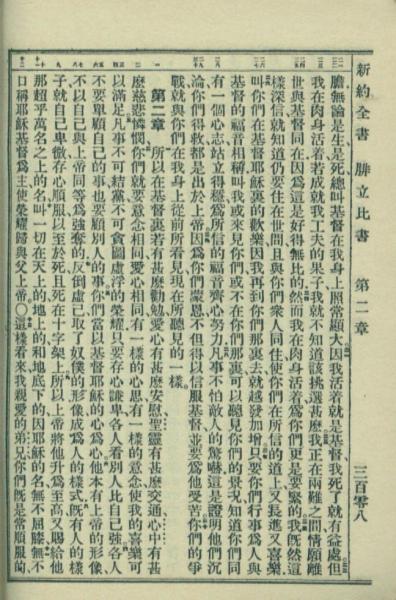 新約全書 腓立比書 第二章 三百零八
膽無論是生是死總叫基督在我身上照常顯大因我活着就是基督我死了就有益處但
我在肉身活着若成就我工夫的果子我就不知道該挑選甚麽我正在兩難之間情願離
世與基督同在因爲這是好得無比的然而我在肉身活着爲你們更是要緊的我既然這
樣深信就知道仍要住在世間且與你們衆人同住使你們在所信的道上又長進又喜樂
叫你們在基督耶穌裏的歡樂因我再到你們那裏去就越發加增只要你們行事爲人與
基督的福音相稱叫我或來見你們或不在你們那裏可以聽見你們的景況知道你們同
有一個心志站立得穩爲所信的福音齊心努力凡事不怕敵人的驚嚇這是證明他們沉
淪你們得救都是出於上帝因爲你們蒙恩不但得以信服基督並要爲他受苦你們的爭
戰就與你們在我身上從前所看見現在所聽見的一樣
第二章 所以在基督裏若有甚麽勸勉愛心有甚麽安慰聖靈有甚麽交通心中有甚
麽慈悲憐憫你們就要意念相同愛心相同有一樣的心思有一樣的意念使我的喜樂可
以滿足凡事不可結黨不可貪圖虛浮的榮耀只要存心謙卑各人看別人比自己強各人
不要單顧自己的事也要顧別人的事你們當以基督耶穌的心爲心他本有上帝的形像
不以自己與上帝同等爲強奪的反倒虛己取了奴僕的形像成爲人的樣式既有人的樣
子就自己卑微存心順服以至於死且死在十字架上所以上帝將他升爲至高又賜給他
那超乎萬名之上的名叫一切在天上的地上的和地底下的因耶穌的名無不屈膝無不
口稱耶穌基督爲主使榮耀歸與父上帝〇這樣看來我親愛的弟兄你們既是常順服的